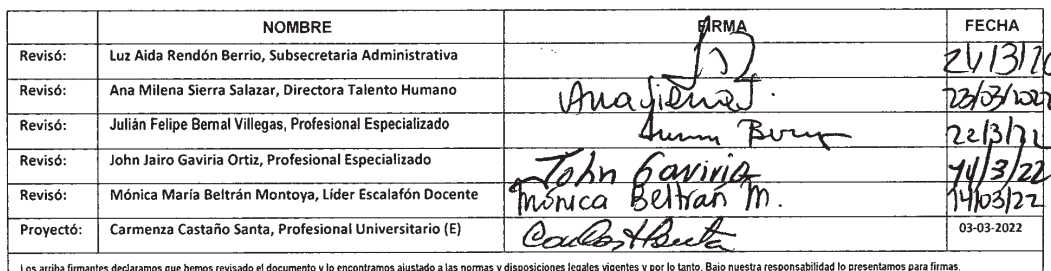 NOMBRE FIRMA FECHA
Revisó: Luz Aida Rendón Berrio, Subsecretaria Administrativa
Revisó: Ana Milena Sierra Salazar, Directora Talento Humano 23/03/2022
Revisó: Julián Felipe Bernal Villegas, Profesional Especializado 22/3/22
Revisó: John Jairo Gaviria Ortiz, Profesional Especializado John Gaviria 14/3/22
Revisó: Mónica María Beltrán Montoya, Líder Escalafón Docente Mónica Beltrán M. 14/03/22
Proyectó: Carmenza Castaño Santa, Profesional Universitario (E) 03-03-2022
Los arriba firmantes declaramos que hemos revisado el documento y lo encontramos ajustado a las normas y disposiciones legales vigentes y por lo tanto. Bajo nuestra responsabilidad lo presentamos para firmas.